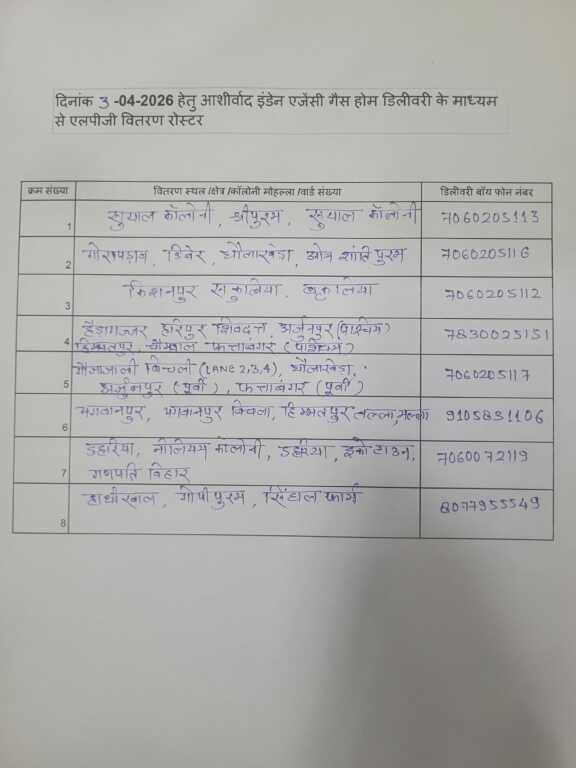 दिनांक 3 -04-2026 हेतु आशीर्वाद इंडेन एजेंसी गैस होम डिलीवरी के माध्यम
से एलपीजी वितरण रोस्टर
क्रम संख्या वितरण स्थल /क्षेत्र /कॉलोनी मोहल्ला /वार्ड संख्या डिलीवरी बॉय फोन नंबर
1 सुयाल कॉलोनी, श्रीपुरम, सुयाल कॉलोनी 7060205113
2 गोरापड़ाव, डिबेर, धौलाखेड़ा, ओम शांति पुरम 7060205116
3 किशनपुर सकुलिया, 7060205112
4 हैड़ागज्जर हरिपुर शिवदत्त, अर्जुनपुर (पश्चिम) 7830025151
हिम्मतपुर, चौम्वाल फत्ताबंगर (पश्चिम)
5 गौजाजाली बिचली (LANE 2,3,4), धौलाखेड़ा, 7060205117
अर्जुनपुर (पूर्वी), फत्ताबंगर (पूर्वी)
6 भगवानपुर, भगवानपुर बिचला, हिम्मतपुर तल्ला, मल्ला 9105831106
7 डहरिया, नीलियम कॉलोनी, डहरिया, इको टाउन, 7060072119
गणपति विहार
8 हाथीखाल, गोपीपुरम, सिंहाल फार्म 8077955549